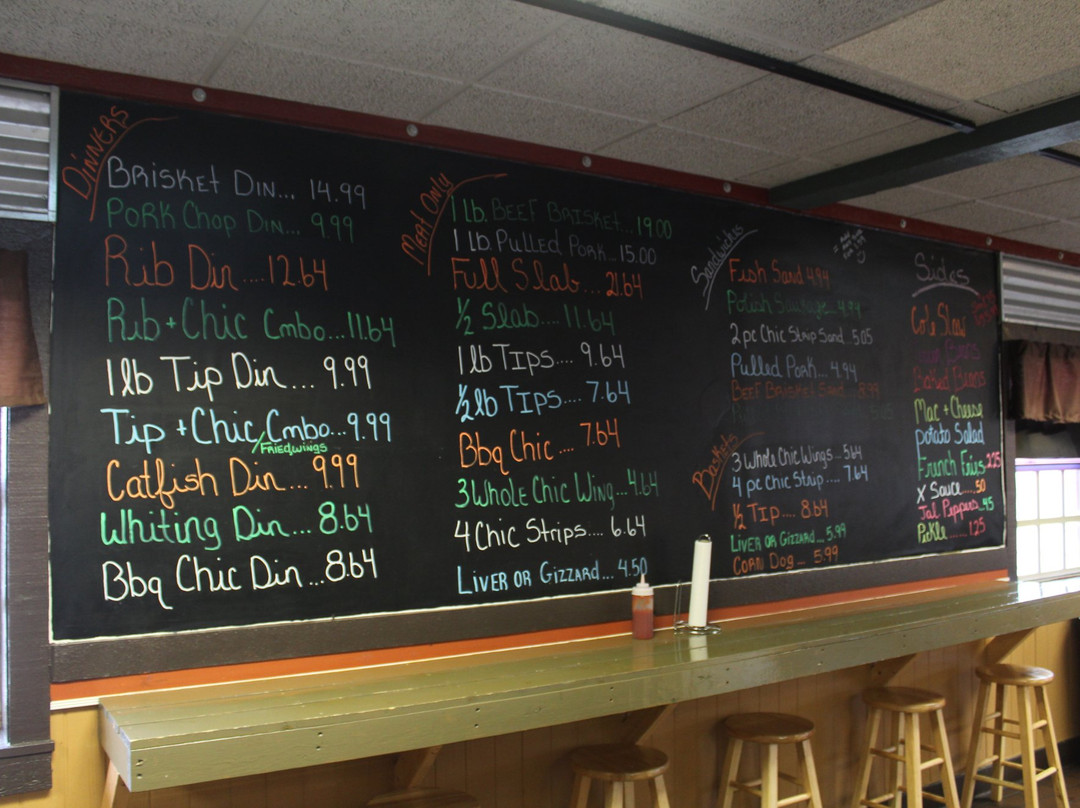 Dinners
Brisket Din... 14.99
Pork Chop Din... 9.99
Rib Din .... 12.64
Rib + Chic Cmbo... 11.64
1 lb Tip Din... 9.99
Tip + Chic Cmbo... 9.99
/Fried wings
Catfish Din... 9.99
Whiting Din... 8.64
Bbq Chic Din... 8.64
Meat Only
1 lb. Beef Brisket... 19.00
1 lb. Pulled Pork... 15.00
Full Slab... 21.64
½ Slab.... 11.64
1 lb Tips.... 9.64
½ lb Tips.... 7.64
Bbq Chic .... 7.64
3 Whole Chic Wing... 4.64
4 Chic Strips.... 6.64
Liver or Gizzard... 4.50
Sandwiches
Fish Sand 4.94
Polish Sausage... 4.94
2 pc Chic Strip Sand.. 5.05
Pulled Pork... 4.94
Beef Brisket Sand... 8.99
Baskets
3 Whole Chic Wings.. 5.64
4 pc Chic Strip.... 7.64
½ Tip.... 8.64
Liver or Gizzard... 5.99
Corn Dog... 5.99
Sides
Cole Slaw
Baked Beans
Mac + Cheese
Potato Salad
French Fries 2.25
X Sauce.....50
Jal Peppers..45
Pickle...... 1.25